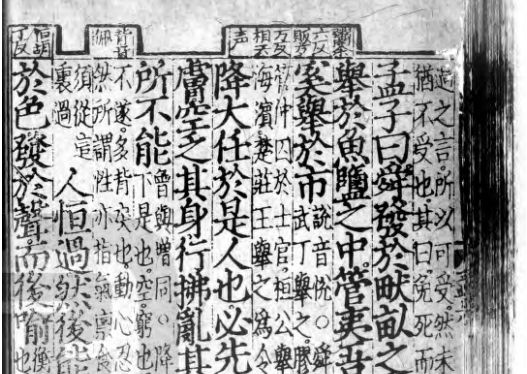 六反
販方
万反
相去
声
背音
佩
過之言所以可受然未
猶不受也其曰免死而
孟子曰舜發於畎畝之
舉於魚鹽之中管夷吾
奚舉於市說音悅〇舜
武丁舉之膠
管仲囚於士官桓公舉
海濱楚莊王舉之爲令
降大任於是人也必先
膚空乏其身行拂亂其
所不能曾與增同〇降
下是也空窮也
不遂多背戾也動心忍
然所謂性亦指氣禀食
須從這
裏過
人恒過然後能
於色發於聲而後喻衡
也